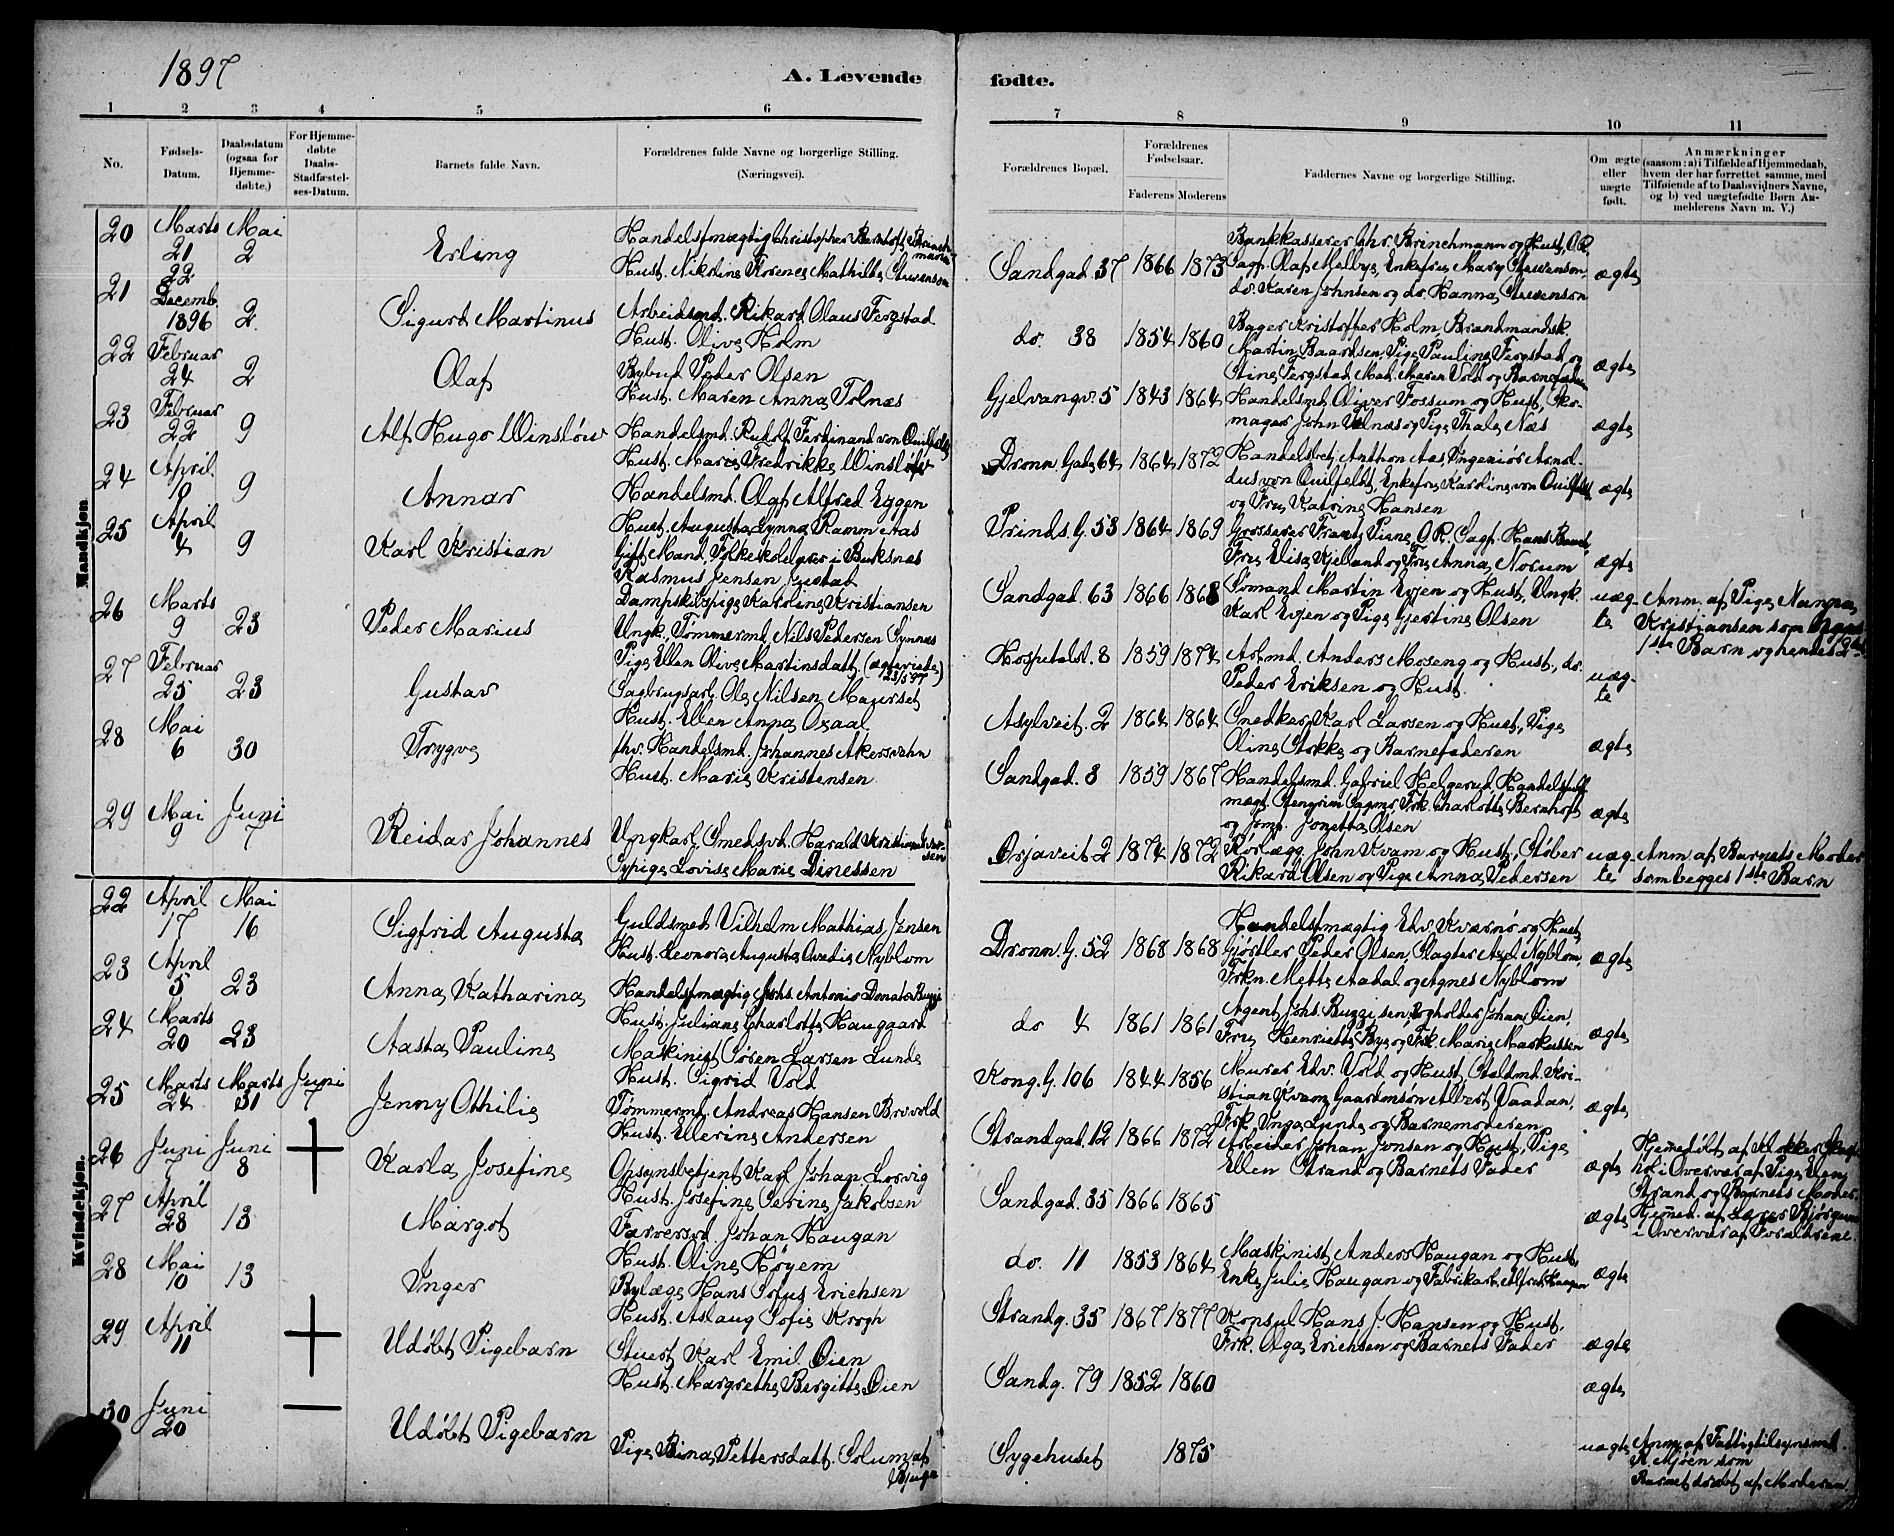 1897
A. Levende fødte.
1 2 3 4 5 6 7 8 9 10 11
No.
Fødsels-Datum.
Daabsdatum (ogsaa for Hjemme-døbte.)
For Hjemme-døbte Daabs-Stadfæstel-ses-Datum.
Barnets fulde Navn.
Forældrenes fulde Navne og borgerlige Stilling. (Næringsvei).
Forældrenes Bopæl.
Forældrenes Fødselsaar.
Faderens Moderens
Faddernes Navne og borgerlige Stilling.
Om ægte eller uægte født.
Anmærkninger (saasom: a) i Tilfælde af Hjemmedaab, hvem der har forrettet samme, med Tilføiende af to Daabsvidners Navne, og b) ved uægtefødte Børn An-melderens Navn m. V.)
Mandkjøn
20 Marts 21 Mai 2 Erling
Handelsfmægtig Christopher Brinchmann
Hust. Nikoline Mathilde
Sandgad. 37 1866 1873
Bankkasserer Chr. Brinchmann og Hust, O.R.
Sagf. Olaf Melbye, Enkefru Mary
do. Karen Johnsen og do. Hanna
ægte
21 22 Decemb. 1896 2. Sigurd Martinus
Arbeidsmd. Rikard Olaus Fergstad
Hust. Olive Holm
do. 38 1854 1860
Bager Kristoffer Holm, Brandmandsk.
Martin Baardsen, Pige Pauline Fergstad og
Stine Fergstad, Mad. Maren Vold og Barnefaderen
ægte
22 Februar 24 2 Olaf
Bybud Peder Olsen
Hust. Maren Anna Tolnæs
Gjelvangv. 5 1843 1864
Handelsmd. Oliver Fossum og Hust, Sko-
mager John Tolnæs og Pige Thale Næs
ægte
23 Februar 22 9 Alf Hugo Winsløw
Handelsmd. Rudolf Ferdinand von Quilfeldt
Hust. Marie Fredrikke Winsløw
Dronn. Gade 64 1864 1872
Handelsbetj. Anthon Aas, Ingeniør Arnol-
dus von Quilfeldt, Enkefru Karoline von Quilfeldt
og Fru Katrine Hansen
ægte
24 April 8 9 Annar
Handelsmd. Olaf Alfred Eggen
Hust. Augusta Lynna Ramm Aas
Prinds. G. 53 1864 1869
Grosserer Frantz Piene, O.R. Sagf. Hans
Fru Elise Kjelland og Fru Anna Norum
ægte
25 April 4 9 Karl Kristian
Gift Mand, Folkeskolelærer i Buksnæs
Rasmus Jensen
Dampskibspige Karoline Kristiansen
Sandgad. 63 1866 1868
Sømand Martin Evjen og Hust, Ungk.
Karl Evjen og Pige Gjertine Olsen
uæg-
te
Anm. af Pige Nanna
Kristiansen som
1ste Barn og hendes 2det
26 Marts 9 23 Peder Marius
Ungk. Tømmermd. Nils Pedersen Synnes
Pige Ellen Olive Martinsdatt. (ægteviede 23/5 97)
Hospetalsl. 8 1859 1874
Arbmd. Anders Moseng og Hust, do.
Peder Eriksen og Hust.
uæg-
te
27 Februar 25 23 Gustav
Sagbrugsarb. Ole Nilsen
Hust. Ellen Anna Oxaal
Asylveit. 2 1864 1864
Snedker Karl Larsen og Hust, Pige
Oline Stokke og Barnefaderen
ægte
28 Mai 6 30 Trygve
fhv. Handelsmd. Johannes Akersvehn
Hust. Marie Kristensen
Sandgad. 8 1859 1867
Handelsmd. Gabriel Helgerud, Handelsfull-
mægt. Stengrim Frk. Charlotte Bernhoft
og Jomf. Jonetta Olsen
ægte
29 Mai 9 Juni 7 Reidar Johannes
Ungkarl, Smedsvd. Harald Kristian
Sypige Lovise Marie Dinessen
Ørjaveit 2 1874 1872
Rørlægg. John Kvam og Hust, Støber
Rikard Olsen og Pige Anna Pedersen
uæg-
te
Anm. af Barnets Moder
som begges 1ste Barn
Kvindekjøn.
22 April 17 Mai 16 Sigfrid Augusta
Guldsmed Vilhelm Mathias Jensen
Hust. Leonora Augusta Nyblom
Dronn. G. 52 1868 1868
Handelsfmægtig Edv. Kværnø og Hust,
Gjørtler Peder Olsen, Slagter Axel Nyblom,
Frkn. Mette Aadal og Agnes Nyblom
ægte
23 April 5 23 Anna Katharina
Handelsfmægtig Johs. Antonio Donato Buzzi
Hust. Juliane Charlotte Haugaard
do 4 1861 1861
Agent Johs. Buzzi, sen, Bogholder Johan Øien,
Fru Henriette Bye og Frk. Marie Markussen
ægte
24 Marts 20 23 Aasta Pauline
Maskinist Søren Larsen Lunde
Hust. Sigrid Vold
Kong. G. 106 1844 1856
Murer Edv. Vold og Hust, Staldmd. Kri-
stian Kvam, Gaardmsøn Albert Vaadan,
Frk. Inga Lunde og Barnemoderen
ægte
25 Marts 24 Marts 31 Juni 7 Jenny Othilie
Tømmermd. Andreas Hansen Brovold
Hust. Ellerine Andersen
Strandgad. 12 1866 1872
Arbeider Johan Jonsen og Hust, Pige
Ellen Strand og Barnets Fader
ægte
Hjemedøbt af Klokker
i Overvær af Pige Ellen
Strand og Barnets Moder.
26 Juni 7 Juni 8 Karla Josefine
Opsynsbetjent Karl Johan Lorvig
Hust. Josefine Serine Jakobsen
Sandgad. 35 1866 1865
ægte
Hjemed. af Lærer
i Overvær af Forældrene.
27 April 28 13 Margot
Farversvd. Johan Haugan
Hust. Oline Høyem
do. 11 1853 1864
Maskinist Anders Haugan og Hust,
Enke Julie Haugan og Fabrikarb. Alfred Haugan
ægte
28 Mai 10 13 Inger
Bylæge Hans Sofus Erichsen
Hust. Aslaug Sofie Krogh
Strandg. 35 1867 1877
Konsul Hans J. Hansen og Hust.
Frk. Olga Erichsen og Barnets Fader
ægte
29 April 11 Udøbt Pigebarn
Stuert Karl Emil Øien
Hust. Margrethe Bergitte Øien
Sandg. 79 1852 1860
ægte
30 Juni 20 Udøbt Pigebarn
Pige Bina Pettersdatt. Solum af
Bjugn
Sygehuset 1875
uægte
Anm. af Fattigtilsynsmd.
R. Mjøen som
Barnet dræbt af Moderen.